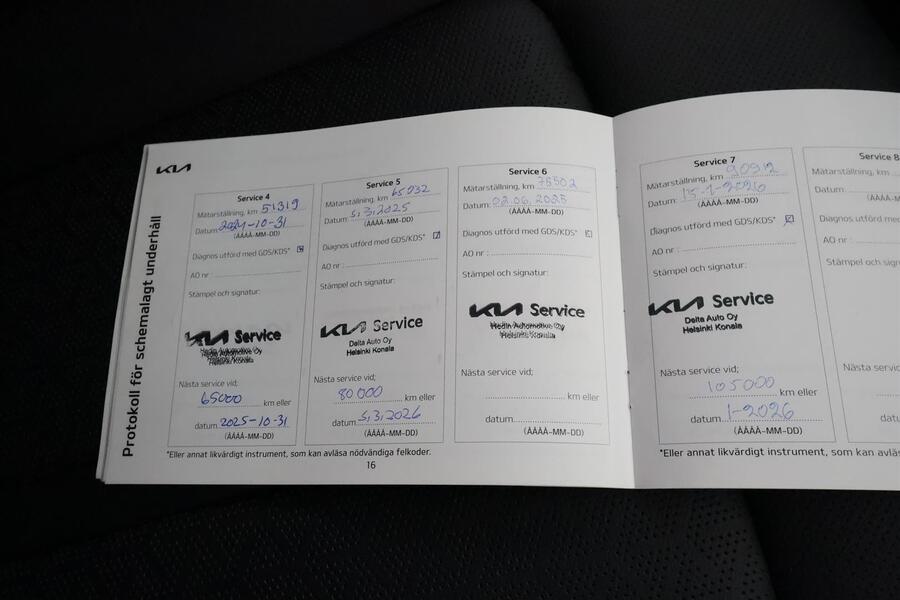 KIA
Protokoll för schemalagt underhåll
Service 4
Mätarställning, km 51319
Datum: 2024-10-31
(ÅÅÅÅ-MM-DD)
Diagnos utförd med GDS/KDS*
AO nr :
Stämpel och signatur:
KIA Service
Hedin Automotive Oy
Helsinki Konala
Nästa service vid;
65000 km eller
datum 2025-10-31
(ÅÅÅÅ-MM-DD)
Service 5
Mätarställning, km 65032
Datum: 5,3,2025
(ÅÅÅÅ-MM-DD)
Diagnos utförd med GDS/KDS*
AO nr :
Stämpel och signatur:
KIA Service
Delta Auto Oy
Helsinki Konala
Nästa service vid;
80000 km eller
datum 5,3,2026
(ÅÅÅÅ-MM-DD)
Service 6
Mätarställning, km 78502
Datum: 02.06.2025
(ÅÅÅÅ-MM-DD)
Diagnos utförd med GDS/KDS*
AO nr :
Stämpel och signatur:
KIA Service
Hedin Automotive Oy
Helsinki Konala
Nästa service vid;
km eller
datum
(ÅÅÅÅ-MM-DD)
*Eller annat likvärdigt instrument, som kan avläsa nödvändiga felkoder.
16
Service 7
Mätarställning, km 90912
Datum: 15-1-2026
(ÅÅÅÅ-MM-DD)
Diagnos utförd med GDS/KDS*
AO nr :
Stämpel och signatur:
KIA Service
Delta Auto Oy
Helsinki Konala
Nästa service vid;
105000
km eller
datum 1-2026
(ÅÅÅÅ-MM-DD)
Service 8
Mätarställning, km
Datum:
(ÅÅÅÅ-MM-
Diagnos utförd med G
AO nr :
Stämpel och signatur
Nästa service
datum
*Eller annat likvärdigt instrument, som kan avläs